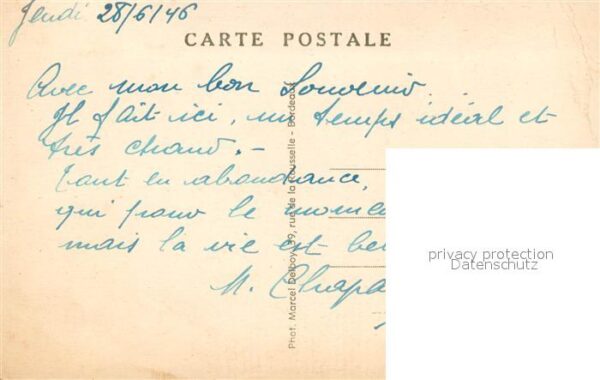 Jeudi 28/6/46
CARTE POSTALE
Avec mon bon Souvenir.
Il fait ici, un temps idéal et
très chaud. -
Tout en abondance,
qui pour le
mais la vie est
M.
Phot. Marcel Delboy, 99, rue de la Rousselle - Bordeaux
privacy protection
Datenschutz